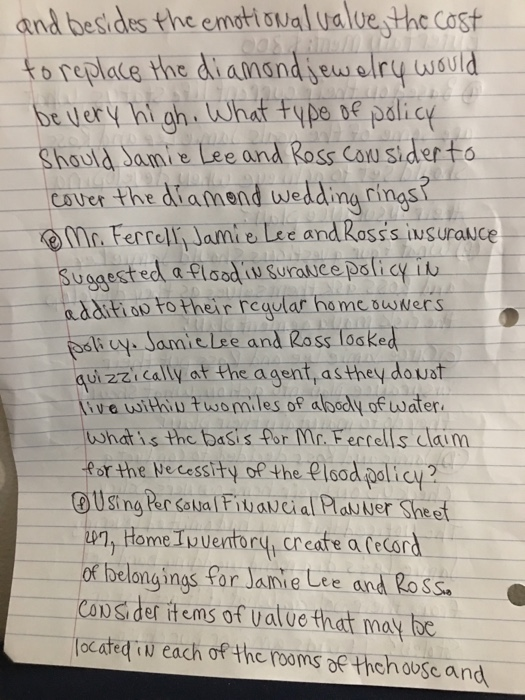 and besides the emotional value, the cost
to replace the diamond jewelry would
be very high. What type of policy
Should Jamie Lee and Ross consider to
cover the diamond wedding rings?
ⓔ Mr. Ferrell, Jamie Lee and Ross's insurance
suggested a flood insurance policy in
addition to their regular homeowners
policy. Jamie Lee and Ross looked
quizzically at the agent, as they do not
live within two miles of a body of water.
What is the basis for Mr. Ferrells claim
for the Necessity of the flood policy?
ⓕ Using Personal Financial Planner Sheet
47, Home Inventory, create a record
of belongings for Jamie Lee and Ross.
Consider items of value that may be
located in each of the rooms of the house and